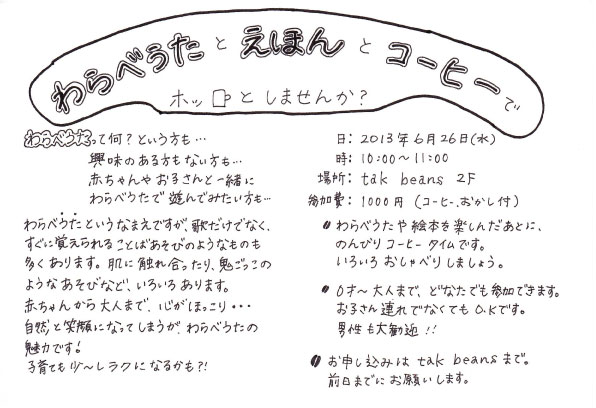 わらべうたとえほんとコーヒーで
ホッとしませんか?
わらべうたって何?という方も…
興味のある方もない方も…
赤ちゃんやお子さんと一緒に
わらべうたで遊んでみたい方も…
わらべうたというなまえですが、歌だけでなく、
すぐに覚えられることばあそびのようなものも
多くあります。肌に触れ合ったり、鬼ごっこの
ようなあそびなど、いろいろあります。
赤ちゃんから大人まで、心がほっこり・・・
自然と笑顔になってしまうが、わらべうたの
魅力です!
子育ても少〜しラクになるかも?!
日:2013年6月26日(水)
時:10:00〜11:00
場所:tak beans 2F
参加費:1000円(コーヒー、おかし付)
わらべうたや絵本を楽しんだあとに、
のんびりコーヒータイムです。
いろいろおしゃべりしましょう。
0才〜大人まで、どなたでも参加できます。
お子さん連れでなくてもO.Kです。
男性も大歓迎!!
お申し込みは tak beansまで。
前日までにお願いします。